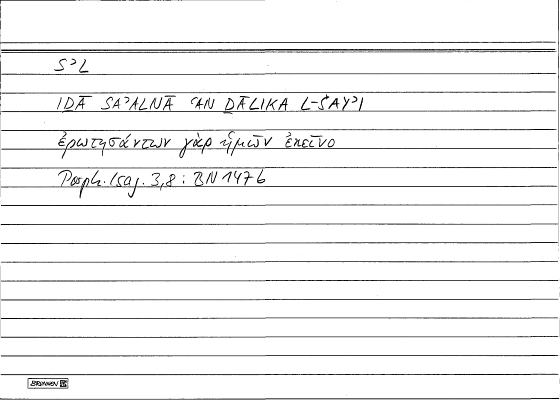 SʾL
IḎĀ SAʾALNĀ ʿAN ḎĀLIKA L-ŠAYʾI
ἐρωτησάντων γὰρ ἡμῶν ἐκεῖνο
Porph. Isag. 3,8 : BN 147b
BRUNNEN